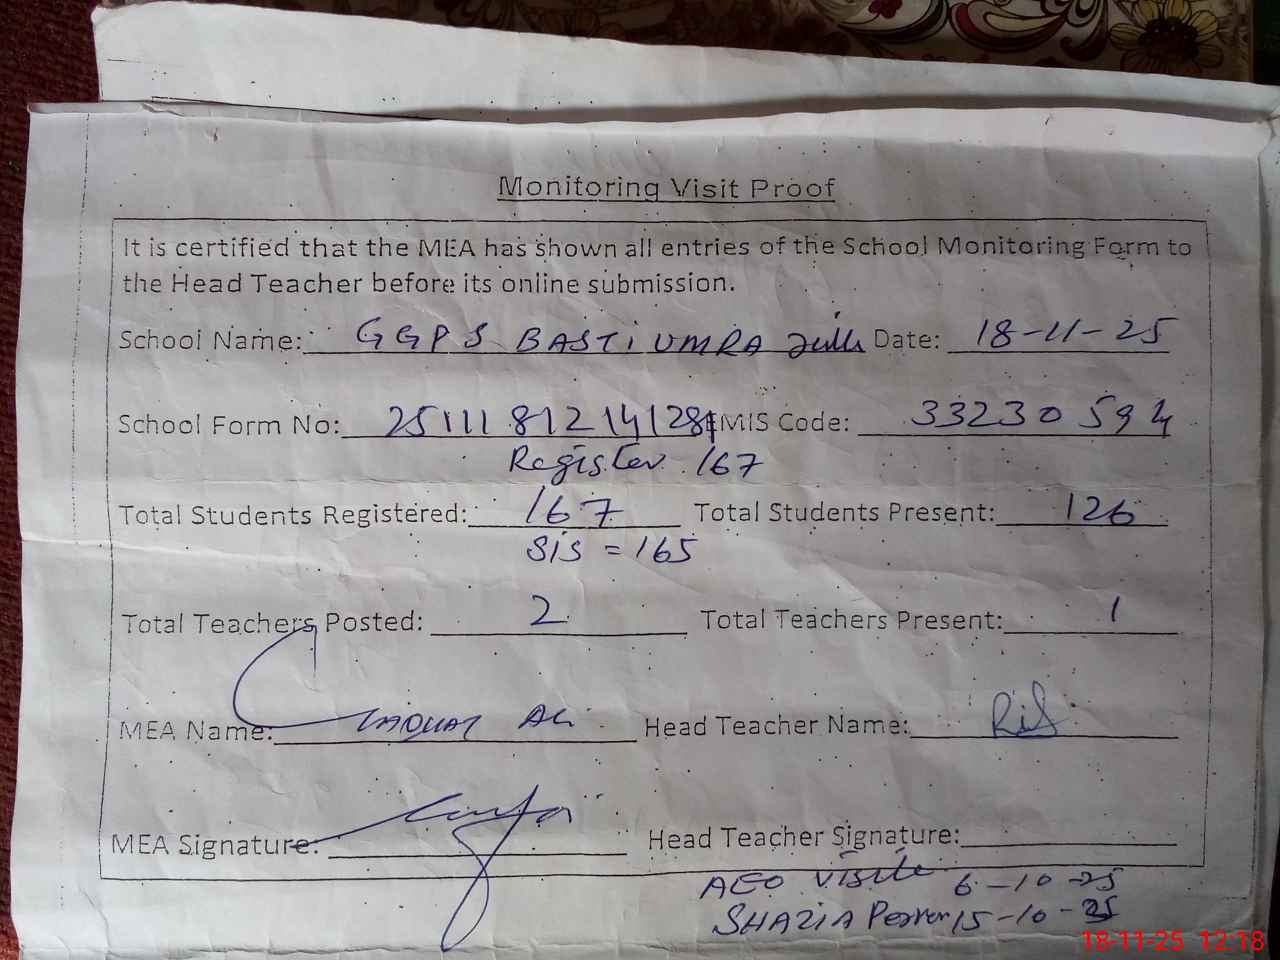 Monitoring Visit Proof
It is certified that the MEA has shown all entries of the School Monitoring Form to
the Head Teacher before its online submission.
School Name: GGPS BASTI UMRA Date: 18-11-25
School Form No: EMIS Code: 33230594
Register 167
Total Students Registered: 167 Total Students Present: 126
SIS = 165
Total Teachers Posted: 2 Total Teachers Present: 1
MEA Name: LAQUAT ALi Head Teacher Name:
MEA Signature: Head Teacher Signature:
AEO Visite 6-10-25
SHAZIA 15-10-25
18-11-25 12:18